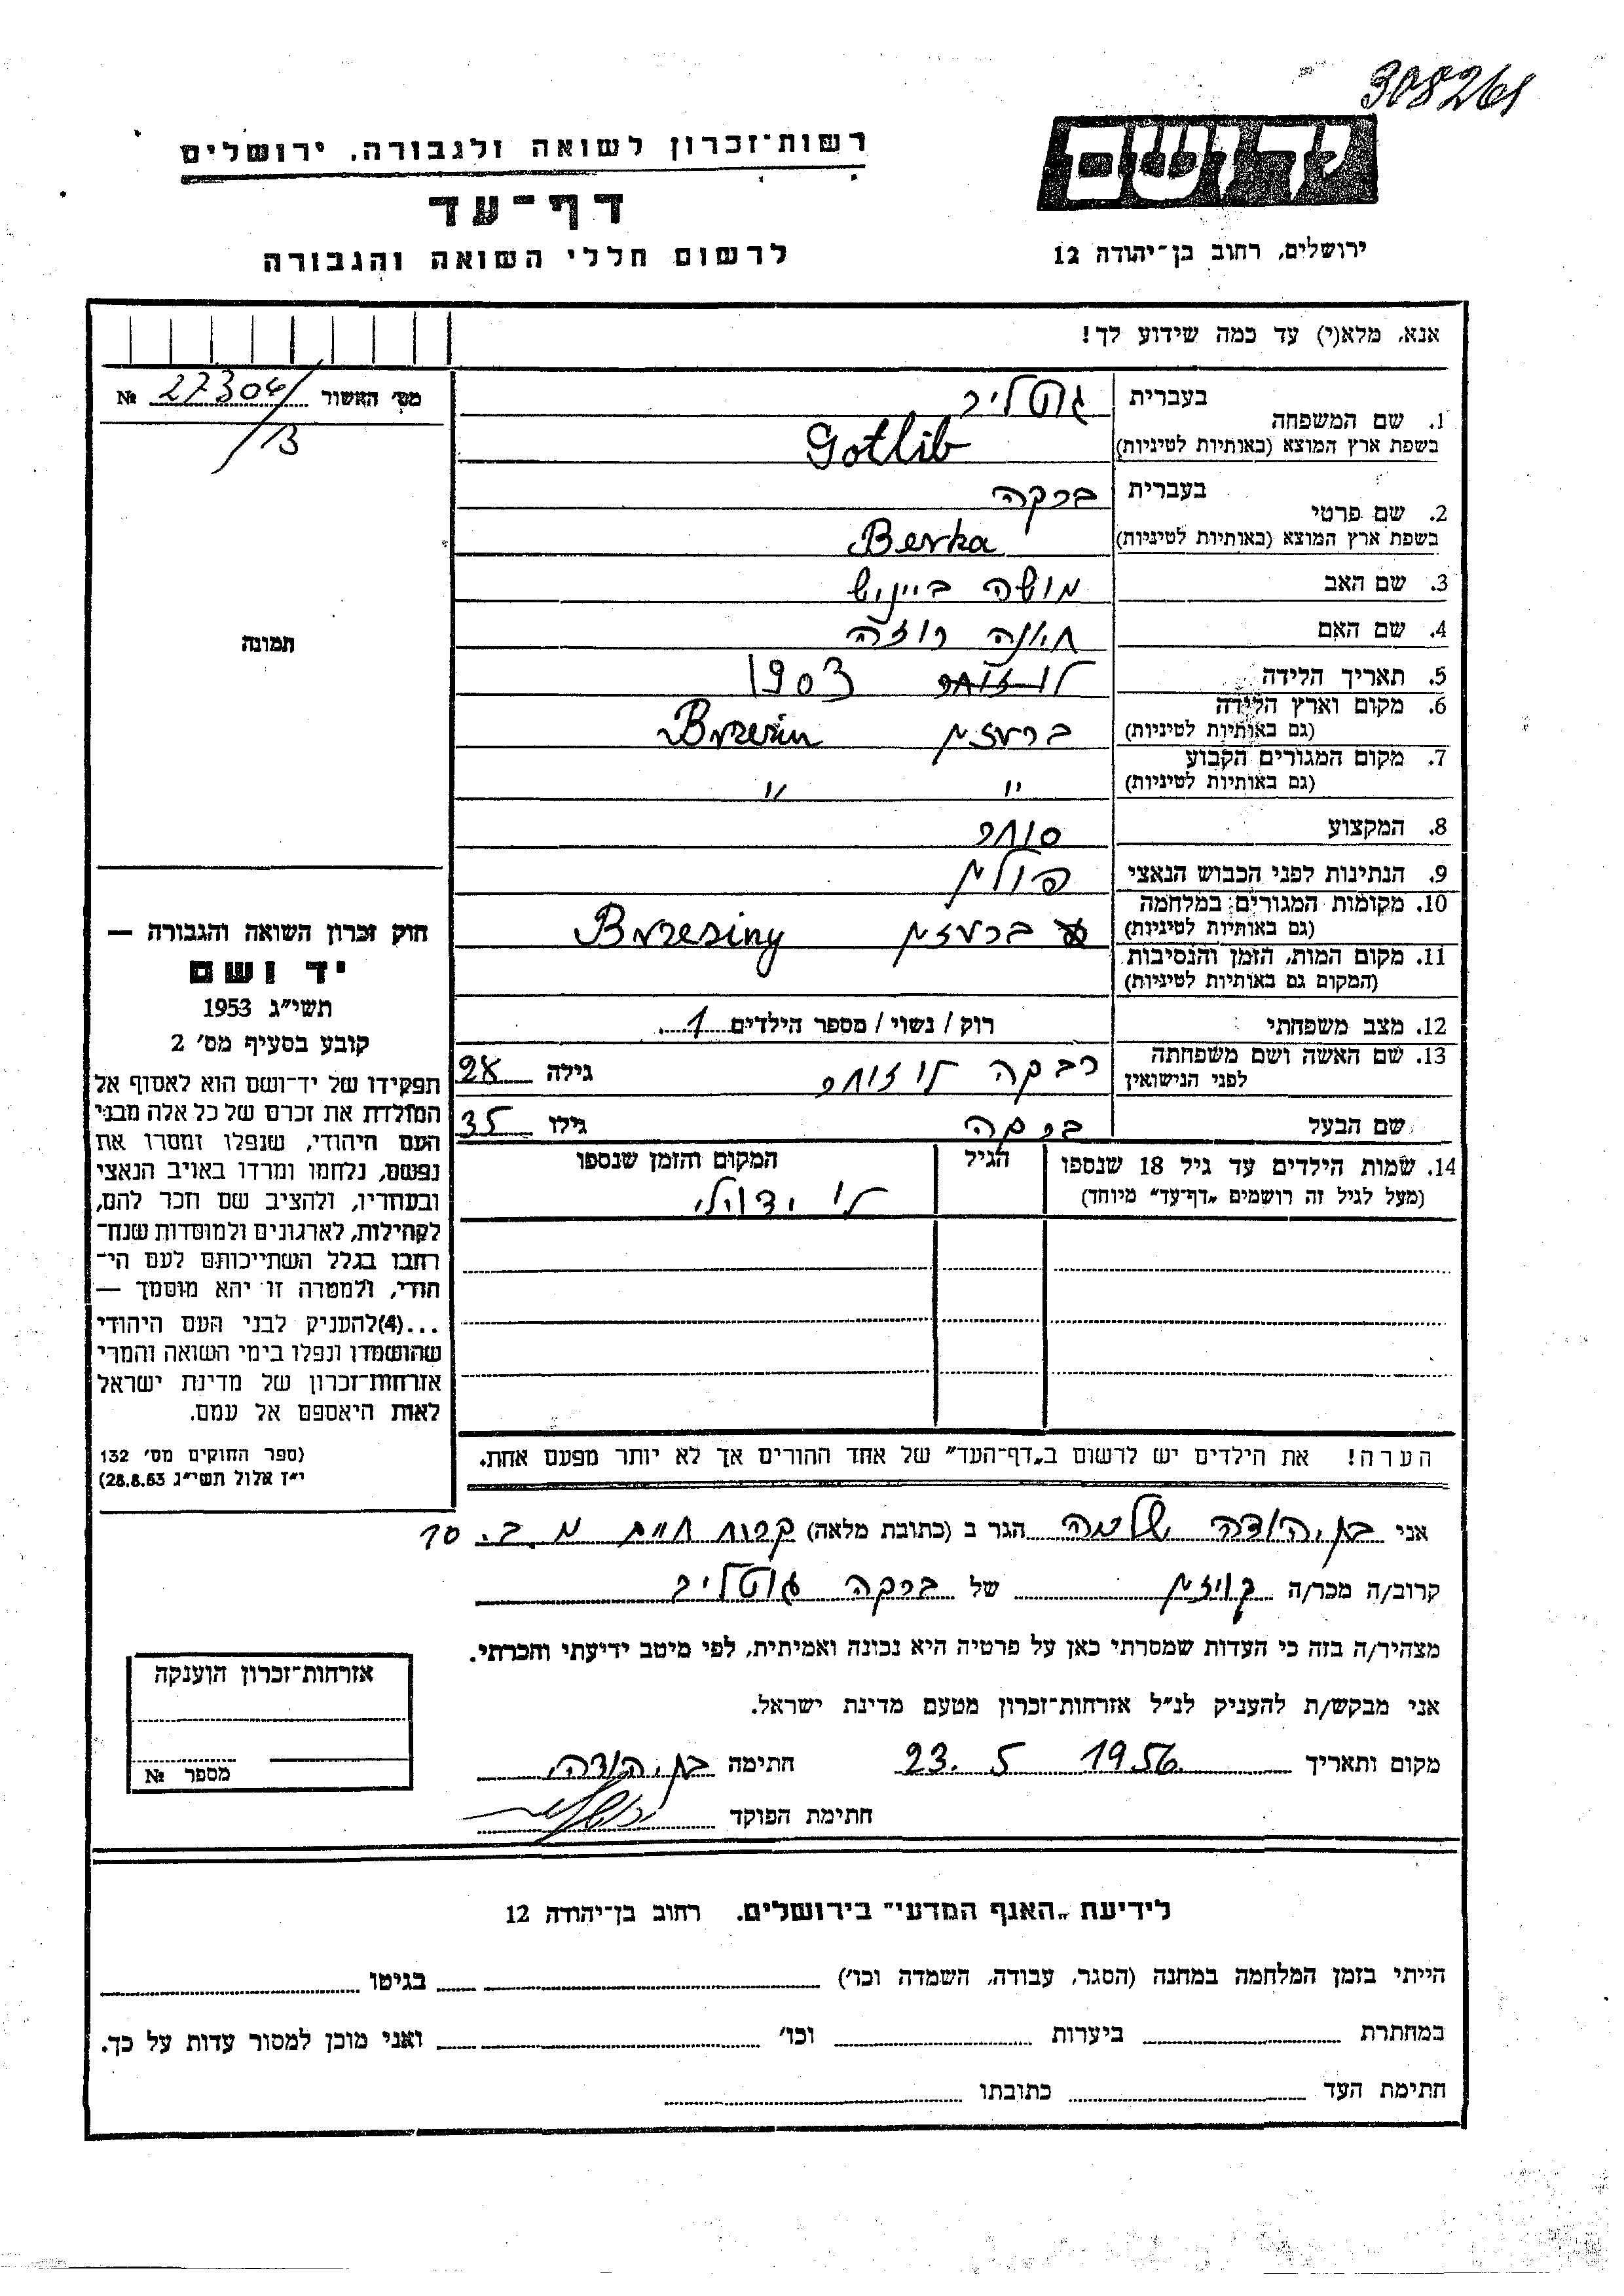 308261
רשות־זכרון לשואה ולגבורה. ירושלים
דף־עד
לרשום חללי השואה והגבורה
יד ושם
ירושלים, רחוב בן־יהודה 12
אנא, מלא(י) עד כמה שידוע לך!
מס׳ האשור 27304 №
/13
תמונה
1. שם המשפחה בעברית גוטליב
בשפת ארץ המוצא (באותיות לטיניות) Gotlib
2. שם פרטי בעברית ברקה
בשפת ארץ המוצא (באותיות לטיניות) Berka
3. שם האב מושה ביייניש
4. שם האם חאנה רוזה
5. תאריך הלידה לו זוחר 1903
6. מקום וארץ הלידה
(גם באותיות לטיניות) ברעזין Brzezin
7. מקום המגורים הקבוע
(גם באותיות לטיניות) " "
8. המקצוע סוחר
9. הנתינות לפני הכבוש הנאצי פולין
10. מקומות המגורים במלחמה
(גם באותיות לטיניות) ברעזין Brzesiny
11. מקום המות, הזמן והנסיבות
(המקום גם באותיות לטיניות)
12. מצב משפחתי רוק / נשוי / מספר הילדים 1
13. שם האשה ושם משפחתה
לפני הנישואין רבקה לו זוחר גילה 28
שם הבעל ברקה גילו 35
14. שמות הילדים עד גיל 18 שנספו הגיל המקום והזמן שנספו
(מעל לגיל זה רושמים „דף־עד״ מיוחד)
לו ידולי
חוק זכרון השואה והגבורה —
יד ושם
תשי״ג 1953
קובע בסעיף מס׳ 2
תפקידו של יד־ושם הוא לאסוף אל
המולדת את זכרם של כל אלה מבני
העם היהודי, שנפלו ומסרו את
נפשם, נלחמו ומרדו באויב הנאצי
ובעוזריו, ולהציב שם וזכר להם,
לקהילות, לארגונים ולמוסדות שנח־
רבו בגלל השתייכותם לעם הי־
הודי, ולמטרה זו יהא מוסמך —
...(4)להעניק לבני העם היהודי
שהושמדו ונפלו בימי השואה והמרי
אזרחות־זכרון של מדינת ישראל
לאות היאספם אל עמם.
(ספר החוקים מס׳ 132
י״ז אלול תשי״ג 28.8.53)
הערה! את הילדים יש לרשום ב„דף־העד״ של אחד ההורים אך לא יותר מפעם אחת.
אני בן יהודה שלמה הגר ב (כתובת מלאה) קרית חיים מ.ב. 10
קרוב/ה מכר/ה קוזין של ברקה גוטליב
מצהיר/ה בזה כי העדות שמסרתי כאן על פרטיה היא נכונה ואמיתית, לפי מיטב ידיעתי והכרתי.
אני מבקש/ת להעניק לנ״ל אזרחות־זכרון מטעם מדינת ישראל.
מקום ותאריך 23. 5 1956 חתימה בן יהודה
חתימת הפוקד
אזרחות־זכרון הוענקה
מספר №
לידיעת „האגף המדעי״ בירושלים. רחוב בן־יהודה 12
הייתי בזמן המלחמה במחנה (הסגר, עבודה, השמדה וכו׳) בגיטו
במחתרת ביערות וכו׳ ואני מוכן למסור עדות על כך.
חתימת העד כתובתו